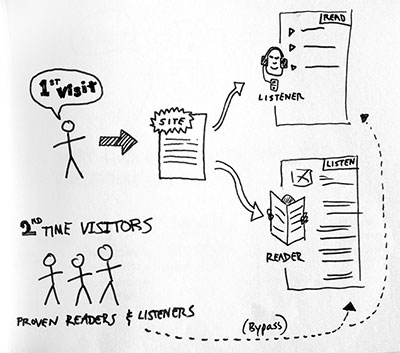 1ST VISIT
SITE
READ
LISTENER
LISTEN
READER
2ND TIME VISITORS
PROVEN READERS & LISTENERS
(Bypass)